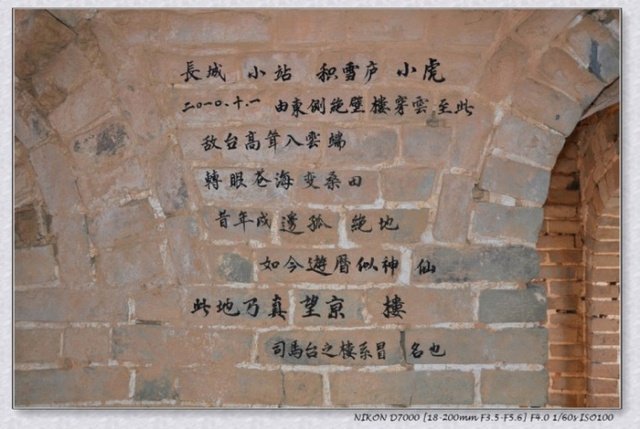 長城 小站 积雪庐 小虎
二〇一〇.十.一 由東側絶壁樓穿雲至此
敌台高耸入雲端
轉眼苍海变桑田
昔年戍邊孤絶地
如今遊曆似神仙
此地乃真望京樓
司馬台之樓系冒名也
NIKON D7000 [18-200mm F3.5-F5.6] F4.0 1/60s ISO100